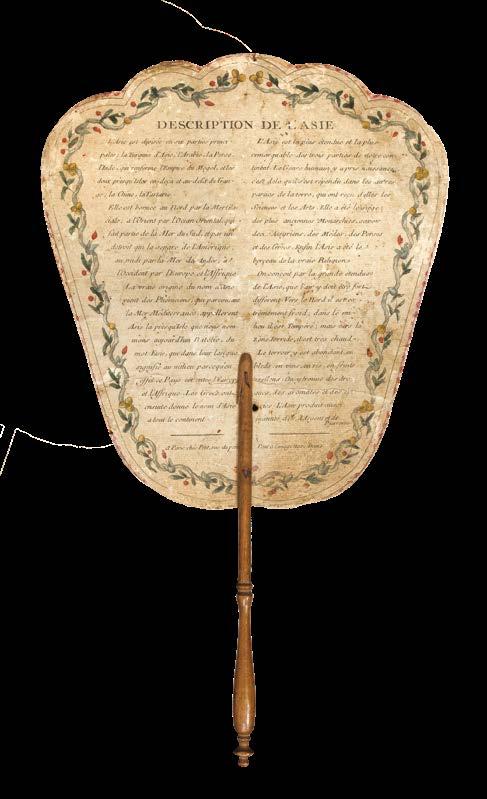 DESCRIPTION DE L'ASIE
L'Asie est divisée en six parties princi
pales; la Turquie d'Asie, l'Arabie, la Perse
l'Inde, qui renferme l'Empire du Mogol, et les
deux presqu'Isles en deçà et au-delà du Gan-
ge, la Chine, la Tartarie.
Elle est bornée au Nord par la Mer Gla-
ciale; à l'Orient par l'Océan Oriental, qui
fait partie de la Mer du Sud, et par un
détroit qui la sépare de l'Amérique
au midi par la Mer des Indes; à
l'Occident par l'Europe et l'Affrique
La vraie origine du nom d'Asie
vient des Phéniciens, qui parcourant
la Mer Méditerranée, appellerent
Asie la presqu'Isle que nous nom
mons aujourd'hui Natolie, du
mot Asie, que dans leur langue
signifie au milieu parce qu'en
effet ce Pays est entre l'Europe
et l'Affrique. Les Grecs ont
ensuite donné le nom d'Asie
à tout le continent.
L'Asie est la plus étendue et la plus
remarquable des trois parties de notre con-
tinent. Le Genre humain y a pris naissance,
c'est delà qu'il s'est répendu dans les autres
parties de la terre, qui ont reçu d'elle les
Sciences et les Arts. Elle a été le siège
des plus anciennes Monarchies, savoir
des Assyriens, des Mèdes, des Perses
et des Grecs. Enfin l'Asie a été le
berceau de la vraie Religion.
On conçoit par la grande étendue
de l'Asie, que l'air y doit être fort
différent. Vers le Nord il est ex-
trêmement froid; dans le mi-
lieu il est Tempéré; mais vers la
Zone Torride, il est très chaud.
Le terroir y est abondant en
bleds en vins, en ris, en fruits
excellens. On y trouve des dro
gues, des aromates et des
L'Asie produit aussi
d'Argent et de
Pierreries
à Paris chés Petit, rue du petit Pont à l'image Notre Dame